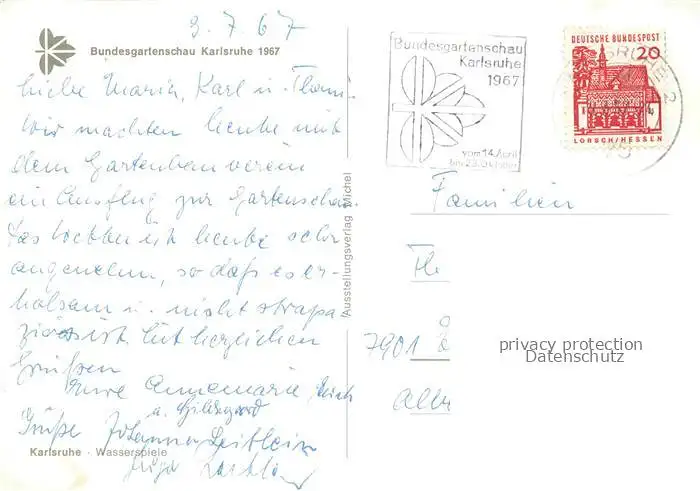 3.7.67
Bundesgartenschau Karlsruhe 1967
Liebe Maria, Karl u. Thomas
Wir machten heute mit
dem Gartenbauverein
ein Ausflug zur Gartenschau.
Das Wetter ist heute sehr
angenehm, so daß es er-
holsam u. nicht strapa
ziös ist. Mit herzlichen
Grüßen
Eure Annemarie, Erich
u. Hildegard
Grüße Johanna
Karlsruhe · Wasserspiele
Ausstellungsverlag Michel
Bundesgartenschau
Karlsruhe
1967
vom 14. April
bis 23. Oktober
DEUTSCHE BUNDESPOST
20
LORSCH/HESSEN
Familien
Th
7901
privacy protection
Datenschutz